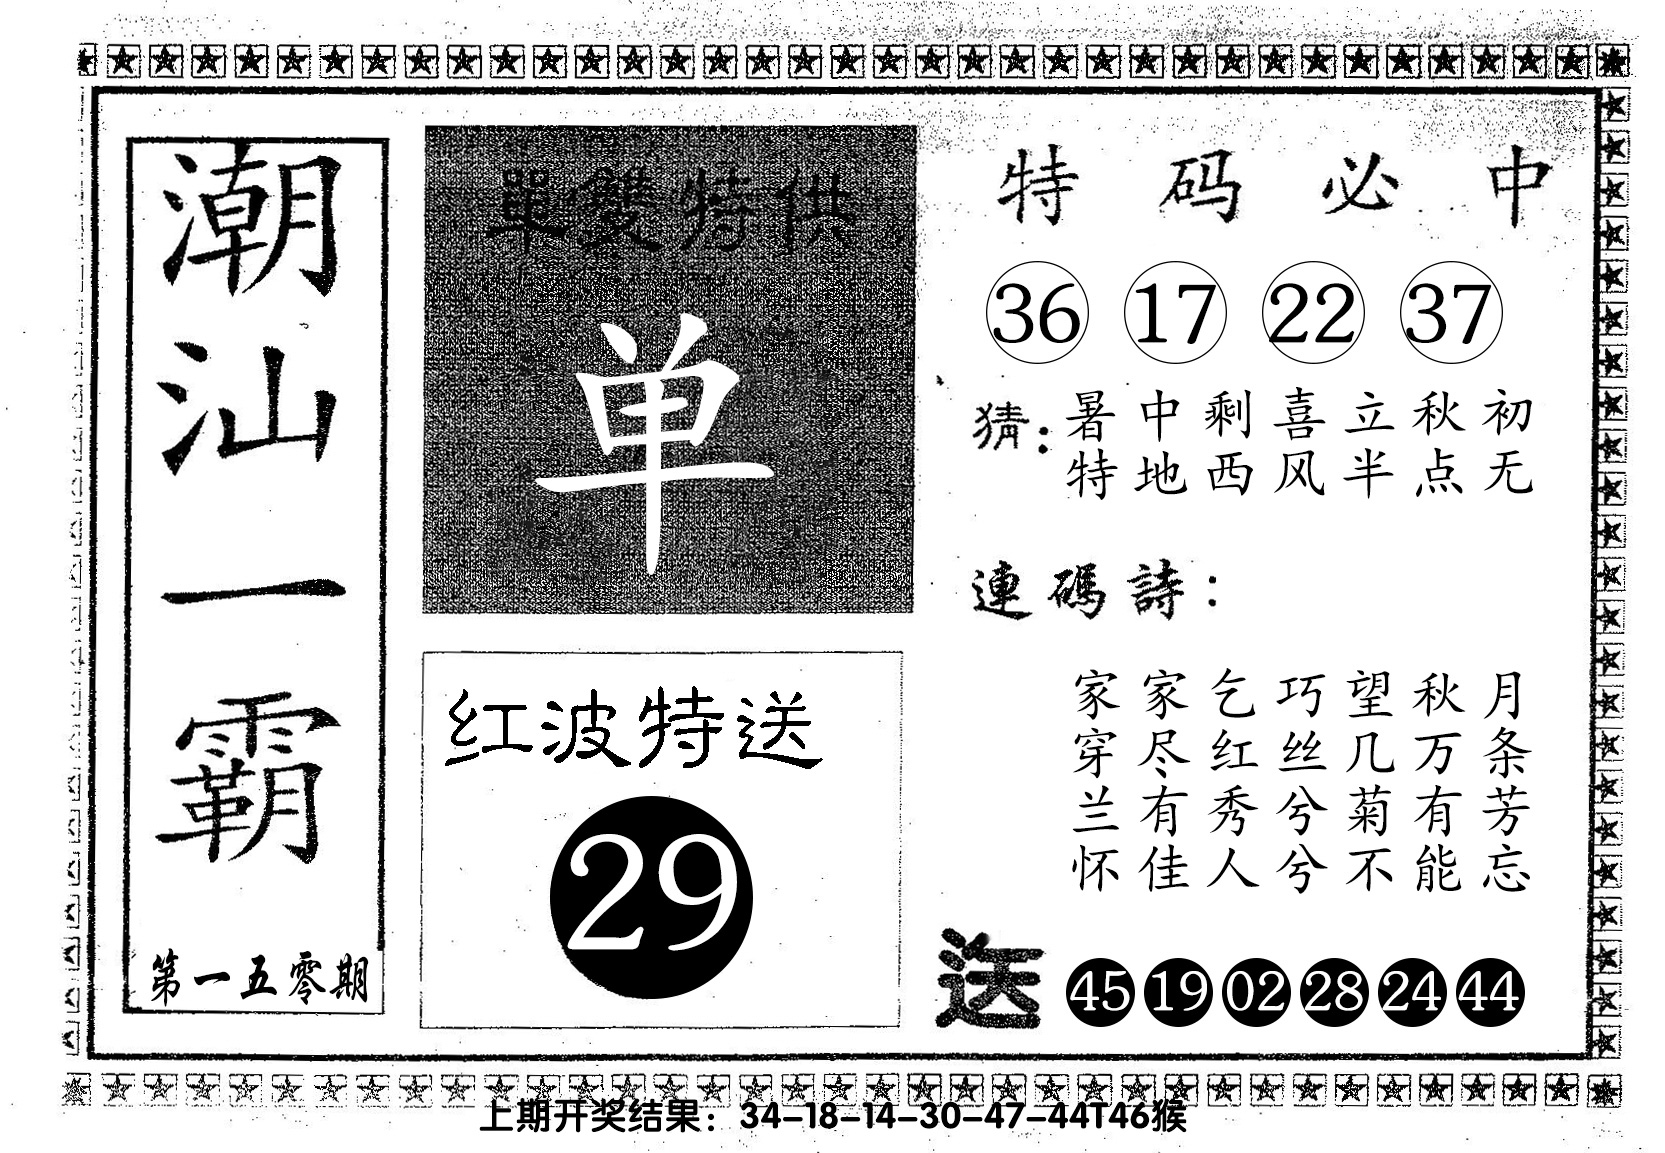 潮汕一霸
第一五零期
單雙特供
单
红波特送
29
特码必中
36 17 22 37
猜：暑中剩喜立秋初
特地西风半点无
連碼詩：
家家乞巧望秋月
穿尽红丝几万条
兰有秀兮菊有芳
怀佳人兮不能忘
送 45 19 02 28 24 44
上期开奖结果：34-18-14-30-47-44T46猴